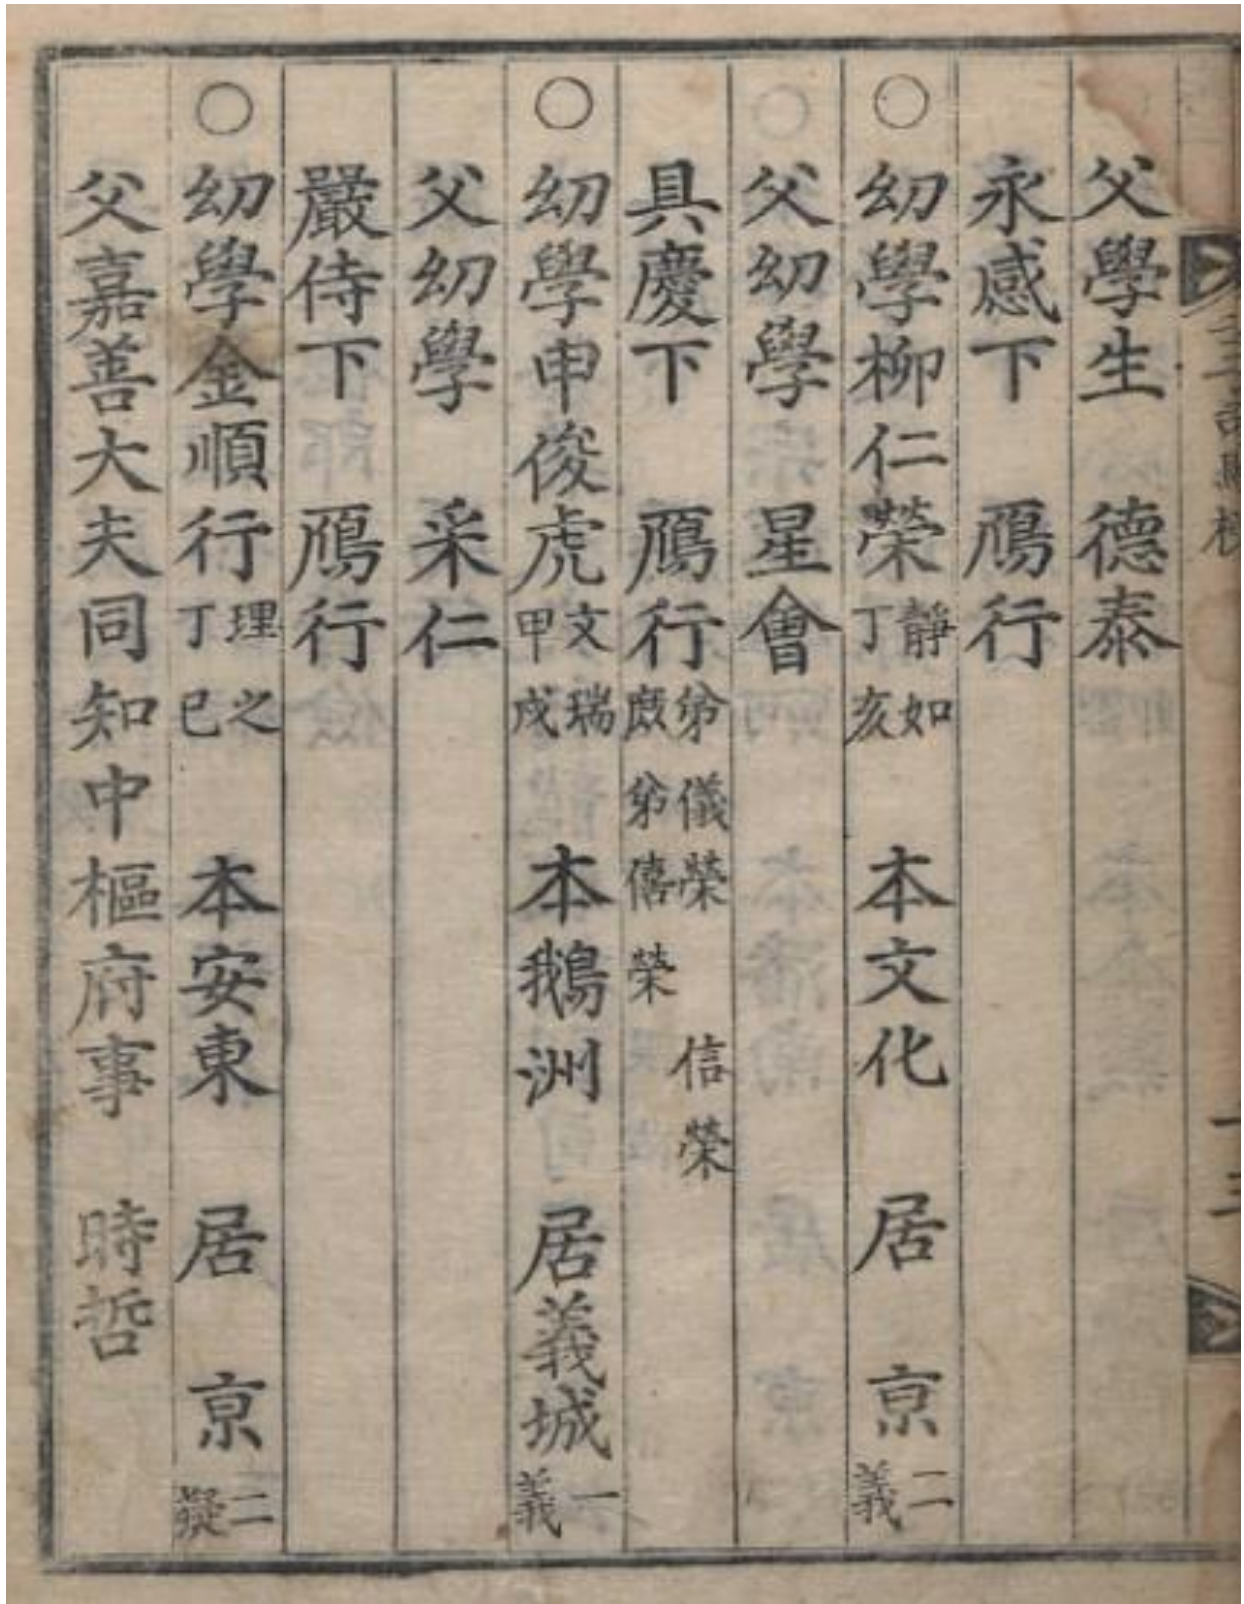 父學生 德泰
永感下 鴈行
○幼學柳仁榮 靜如 丁亥 本文化 居 京 二義
父幼學 星會
具慶下 鴈行 弟儀榮 信榮 庶弟僖榮
○幼學申俊虎 文瑞 甲戌 本鵝洲 居義城 一義
父幼學 采仁
嚴侍下 鴈行
○幼學金順行 理之 丁巳 本安東 居 京 二疑
父嘉善大夫同知中樞府事 時哲